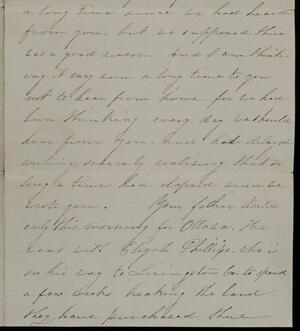 a long time since we had heard
from you, but we supposed there
was a good reason. And I am think-
ing it may seem a long time to you
not to hear from home. for we had
been thinking every day we should
hear from you, and had delayed
writing, scarcely realizing that so
long a time had elapsed since we
wrote you. Your father started
early this morning for Ottawa. He
went with Elijah Phillips, who is
on his way to Livingston Co. to spend
a few weeks breaking the land
they have purchased there